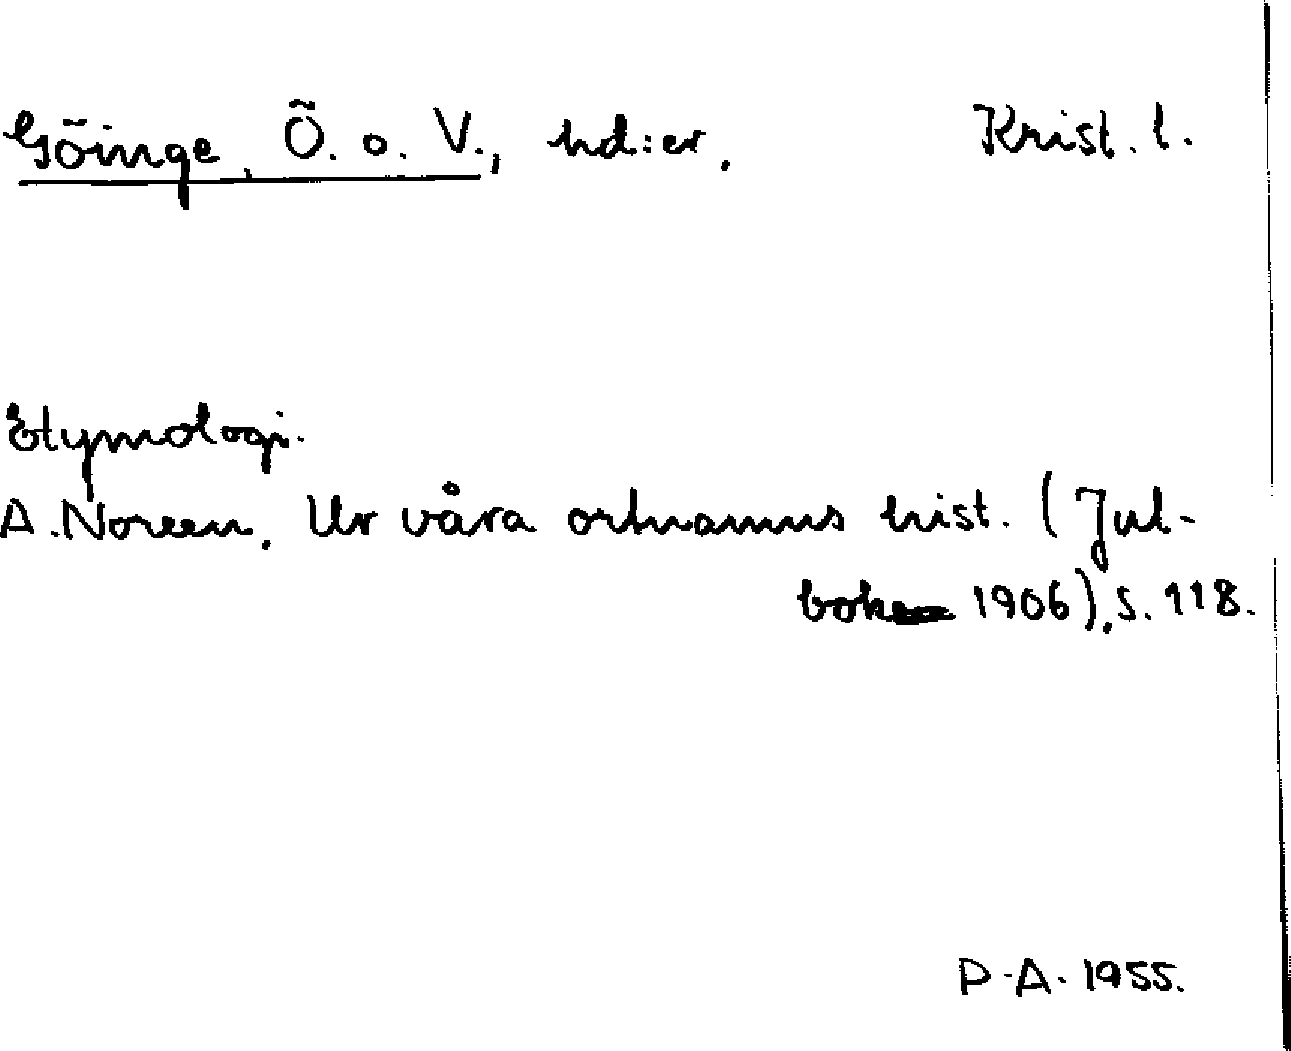 Göinge, Ö. o. V., hd:er. Krist. l.
Etymologi.
A. Noreen, Ur våra ortnamns hist. (Jul-
bok 1906), s. 118.
P.A. 1955.